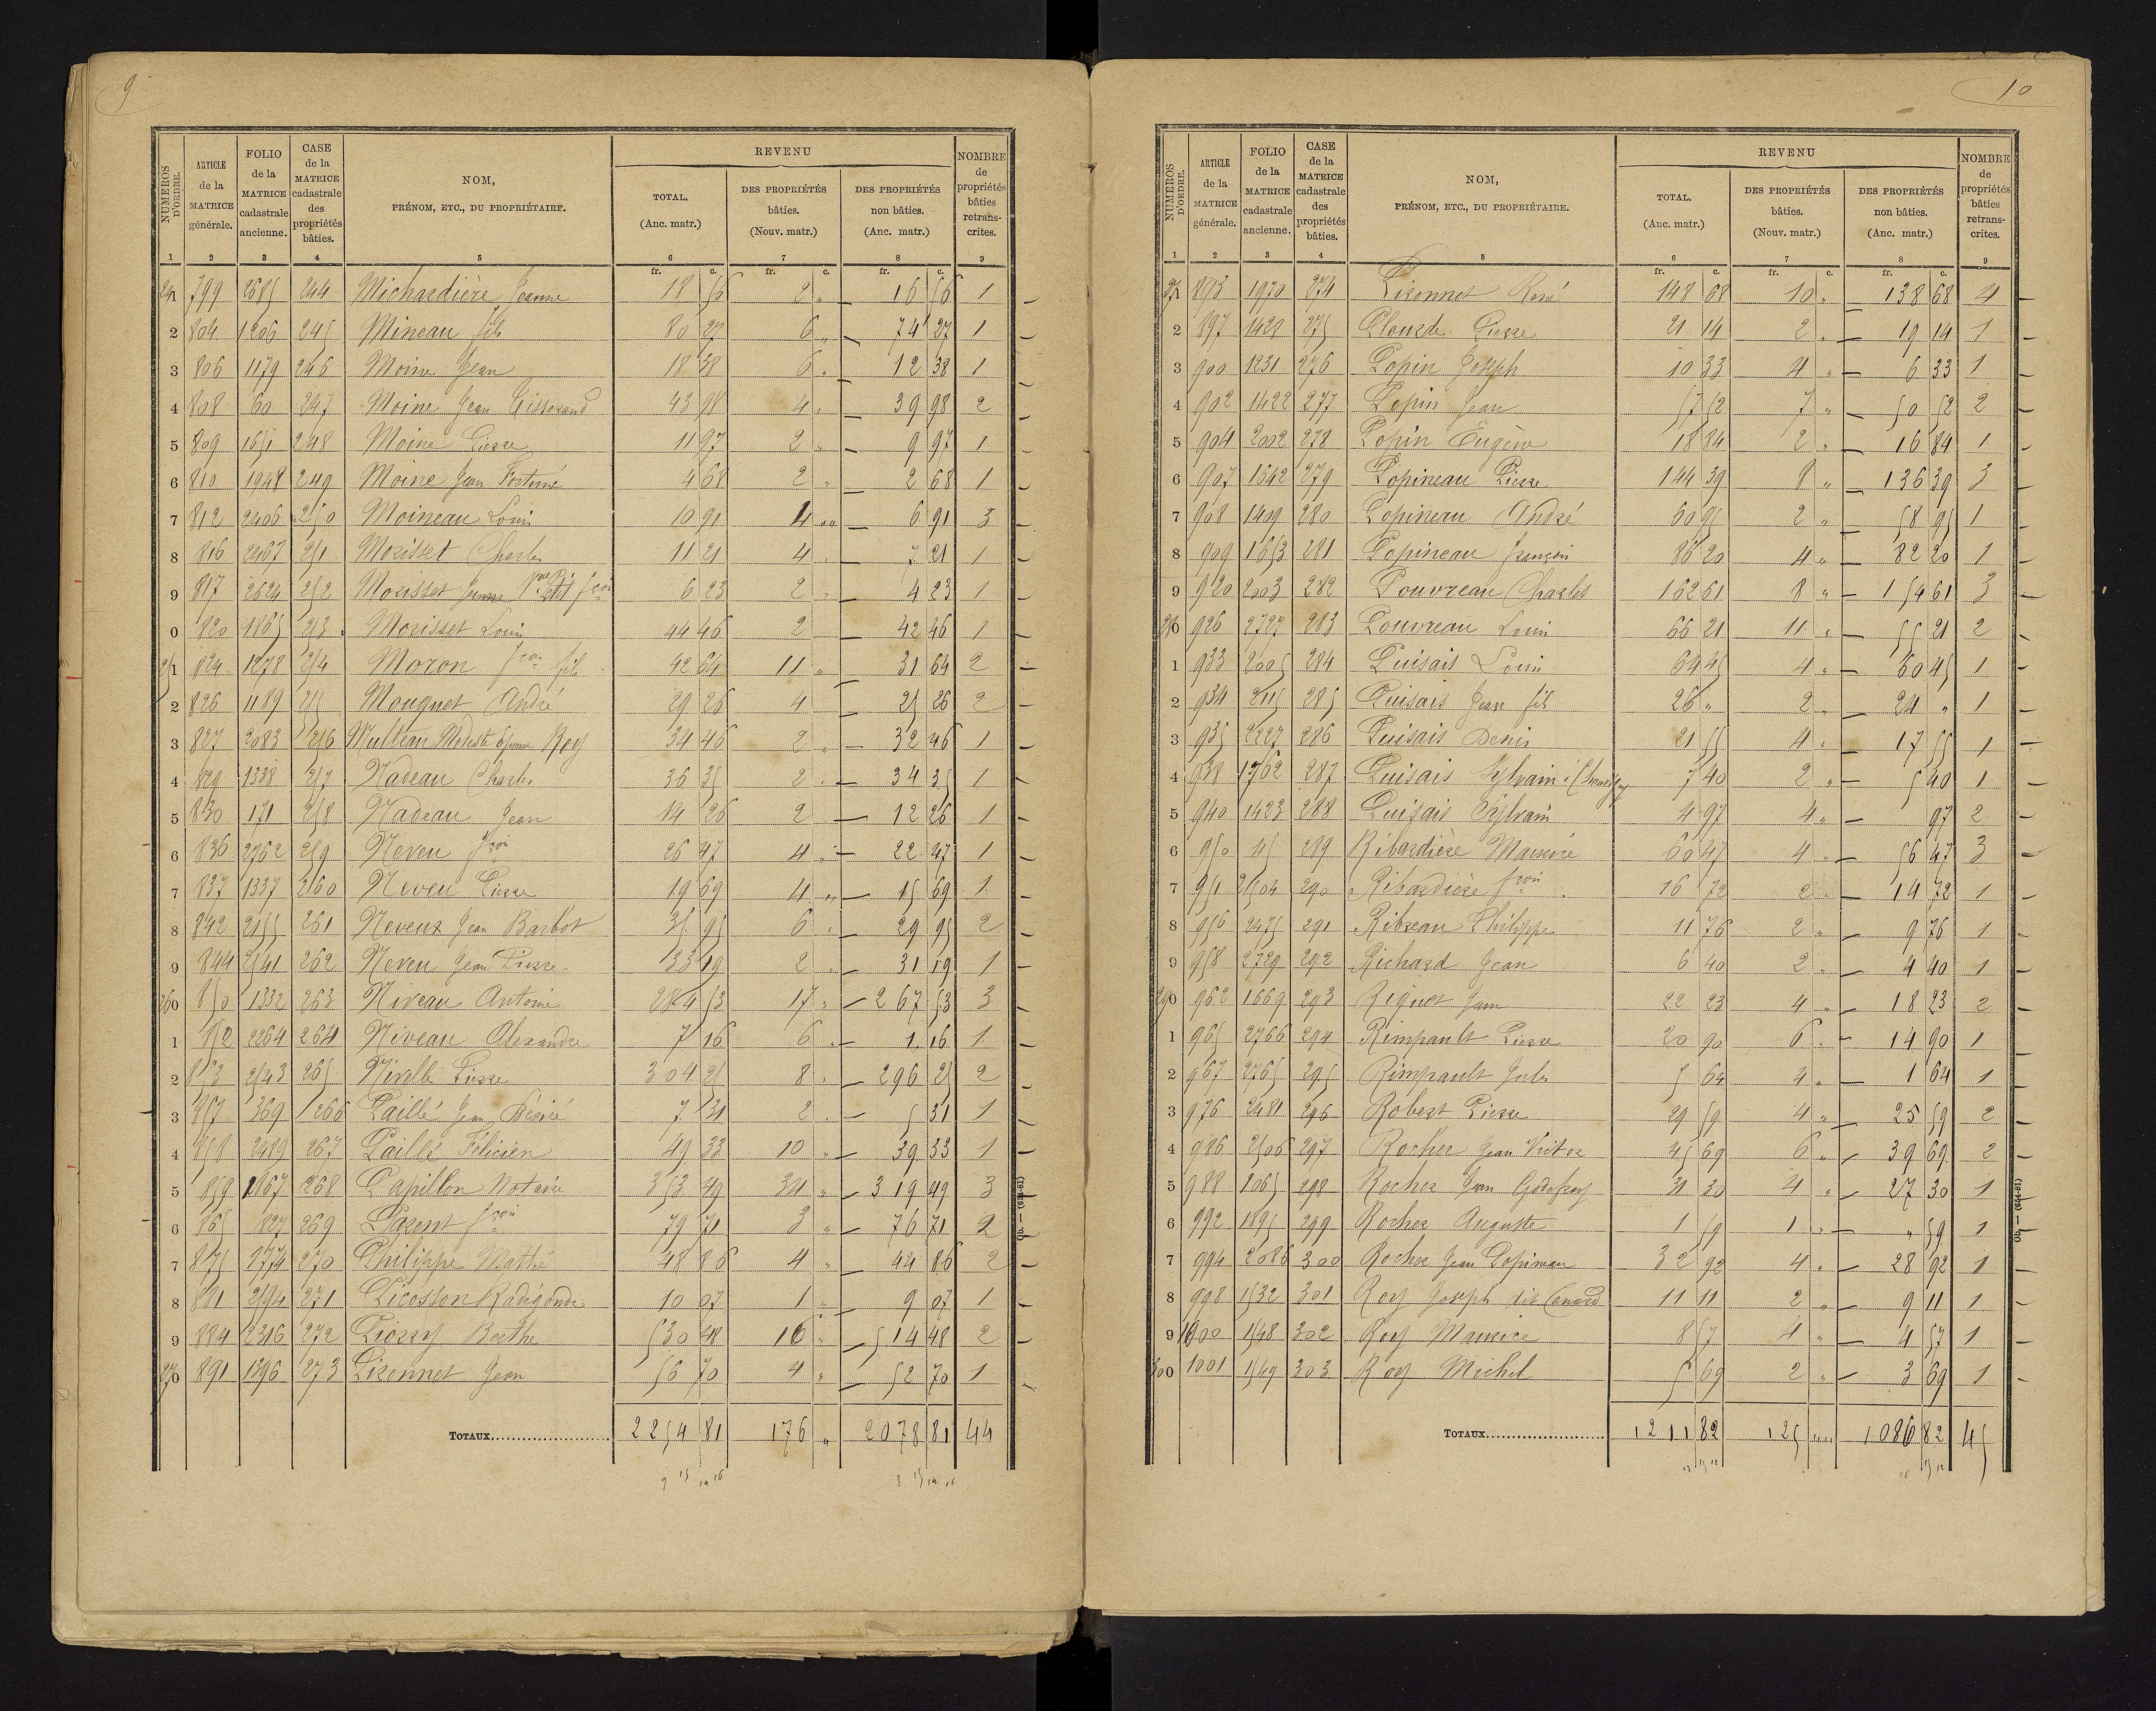 9
NUMÉROS D'ORDRE. ARTICLE de la MATRICE générale. FOLIO de la MATRICE cadastrale ancienne. CASE de la MATRICE cadastrale des propriétés bâties. NOM, PRÉNOM, ETC., DU PROPRIÉTAIRE. REVENU TOTAL. (Anc. matr.) DES PROPRIÉTÉS bâties. (Nouv. matr.) DES PROPRIÉTÉS non bâties. (Anc. matr.) NOMBRE de propriétés bâties retranscrites.
1 2 3 4 5 6 7 8 9
fr. c. fr. c. fr. c.
241 799 2685 244 Michardière Jeanne 18 56 2 " 16 56 1
2 804 1206 245 Mineau fils 80 27 6 " 74 27 1
3 806 1179 246 Moine Jean 18 38 6 " 12 38 1
4 808 60 247 Moine Jean Tisserand 43 98 4 " 39 98 2
5 809 1651 248 Moine Pierre 11 97 2 " 9 97 1
6 810 1948 249 Moine Jean Fortuné 4 68 2 " 2 68 1
7 812 2406 250 Moineau Louis 10 91 4 " 6 91 3
8 816 2467 251 Morisset Charles 11 21 4 " 7 21 1
9 817 2624 252 Morisset Jeanne Vve Petit fcois 6 23 2 " 4 23 1
0 820 1865 253 Morisset Louis 44 46 2 42 46 1
251 824 1278 254 Moron fcois fils 42 64 11 " 31 64 2
2 826 1189 255 Mouquet André 29 26 4 25 26 2
3 827 2083 256 Multeau Modeste épouse Roy 34 46 2 " 32 46 1
4 829 1338 257 Nadeau Charles 36 35 2 " 34 35 1
5 830 171 258 Nadeau Jean 14 26 2 12 26 1
6 836 2762 259 Neveu fcois 26 47 4 " 22 47 1
7 837 1337 260 Neveu Pierre 19 69 4 " 15 69 1
8 842 2155 261 Neveux Jean Barbot 35 95 6 " 29 95 2
9 844 2541 262 Neveu Jean Pierre 33 19 2 " 31 19 1
260 850 1332 263 Niveau Antoine 284 53 17 " 267 53 3
1 852 2264 264 Niveau Alexandre 7 16 6 " 1 16 1
2 853 2543 265 Nivelle Pierre 304 25 8 " 296 25 2
3 857 369 266 Paillé Jean Désiré 7 31 2 " 5 31 1
4 858 2489 267 Paillé Félicien 49 33 10 " 39 33 1
5 859 1867 268 Papillon Notaire 353 49 34 " 319 49 3
6 865 827 269 Parent fcois 79 71 3 " 76 71 2
7 875 1774 270 Philippe Mathé 48 86 4 " 44 86 2
8 881 2594 271 Picosson Radégonde 10 07 1 " 9 07 1
9 884 2316 272 Piorry Berthe 530 48 16 " 514 48 2
270 891 1396 273 Pironnet Jean 56 70 4 " 52 70 1
TOTAUX 2254 81 176 " 2078 81 44
Ob. — (634-81)
10
NUMÉROS D'ORDRE. ARTICLE de la MATRICE générale. FOLIO de la MATRICE cadastrale ancienne. CASE de la MATRICE cadastrale des propriétés bâties. NOM, PRÉNOM, ETC., DU PROPRIÉTAIRE. REVENU TOTAL. (Anc. matr.) DES PROPRIÉTÉS bâties. (Nouv. matr.) DES PROPRIÉTÉS non bâties. (Anc. matr.) NOMBRE de propriétés bâties retranscrites.
1 2 3 4 5 6 7 8 9
fr. c. fr. c. fr. c.
271 893 1970 274 Pironnet René 148 68 10 " 138 68 4
2 897 1428 275 Plouzde Pierre 21 14 2 " 19 14 1
3 900 1231 276 Popin Joseph 10 33 4 " 6 33 1
4 902 1422 277 Popin Jean 57 52 7 " 50 52 2
5 904 2002 278 Popin Eugène 18 84 2 " 16 84 1
6 907 1642 279 Popineau Pierre 144 39 8 " 136 39 3
7 908 1409 280 Popineau André 60 95 2 " 58 95 1
8 909 1653 281 Popineau François 86 20 4 " 82 20 1
9 920 2003 282 Pouvreau Charles 162 61 8 " 154 61 3
280 926 2727 283 Pouvreau Louis 66 21 11 " 55 21 2
1 933 2005 284 Puisais Louis 64 45 4 " 60 45 1
2 934 2115 285 Puisais Jean fils 26 " 2 " 24 " 1
3 935 2227 286 Puisais Denis 21 55 4 " 17 55 1
4 938 1762 287 Puisais Sylvain 7 40 2 " 5 40 1
5 940 1423 288 Puisais Sylvain 4 97 4 " 97 2
6 950 45 289 Ribardière Maurice 60 47 4 " 56 47 3
7 951 2504 290 Ribardière fcois 16 72 2 " 14 72 1
8 956 2475 291 Ribreau Philippe 11 76 2 " 9 76 1
9 958 2729 292 Richard Jean 6 40 2 " 4 40 1
290 962 1669 293 Riquet Jean 22 23 4 " 18 23 2
1 965 2766 294 Rimpault Pierre 20 90 6 " 14 90 1
2 967 2765 295 Rimpault Jules 5 64 4 " 1 64 1
3 976 2481 296 Robert Pierre 29 59 4 " 25 59 2
4 986 2506 297 Rocher Jean Victor 45 69 6 " 39 69 2
5 988 1065 298 Rocher Jean Godefroy 31 30 4 " 27 30 1
6 992 1895 299 Rocher Auguste 1 59 1 " " 59 1
7 994 2086 300 Rocher Jean Popineau 32 92 4 " 28 92 1
8 998 1532 301 Roy Joseph dit Canard 11 11 2 " 9 11 1
9 1000 1548 302 Roy Maurice 8 57 4 " 4 57 1
300 1001 1549 303 Roy Michel 5 69 2 " 3 69 1
TOTAUX 1211 82 125 " 1086 82 45
Ob. — (634-81)